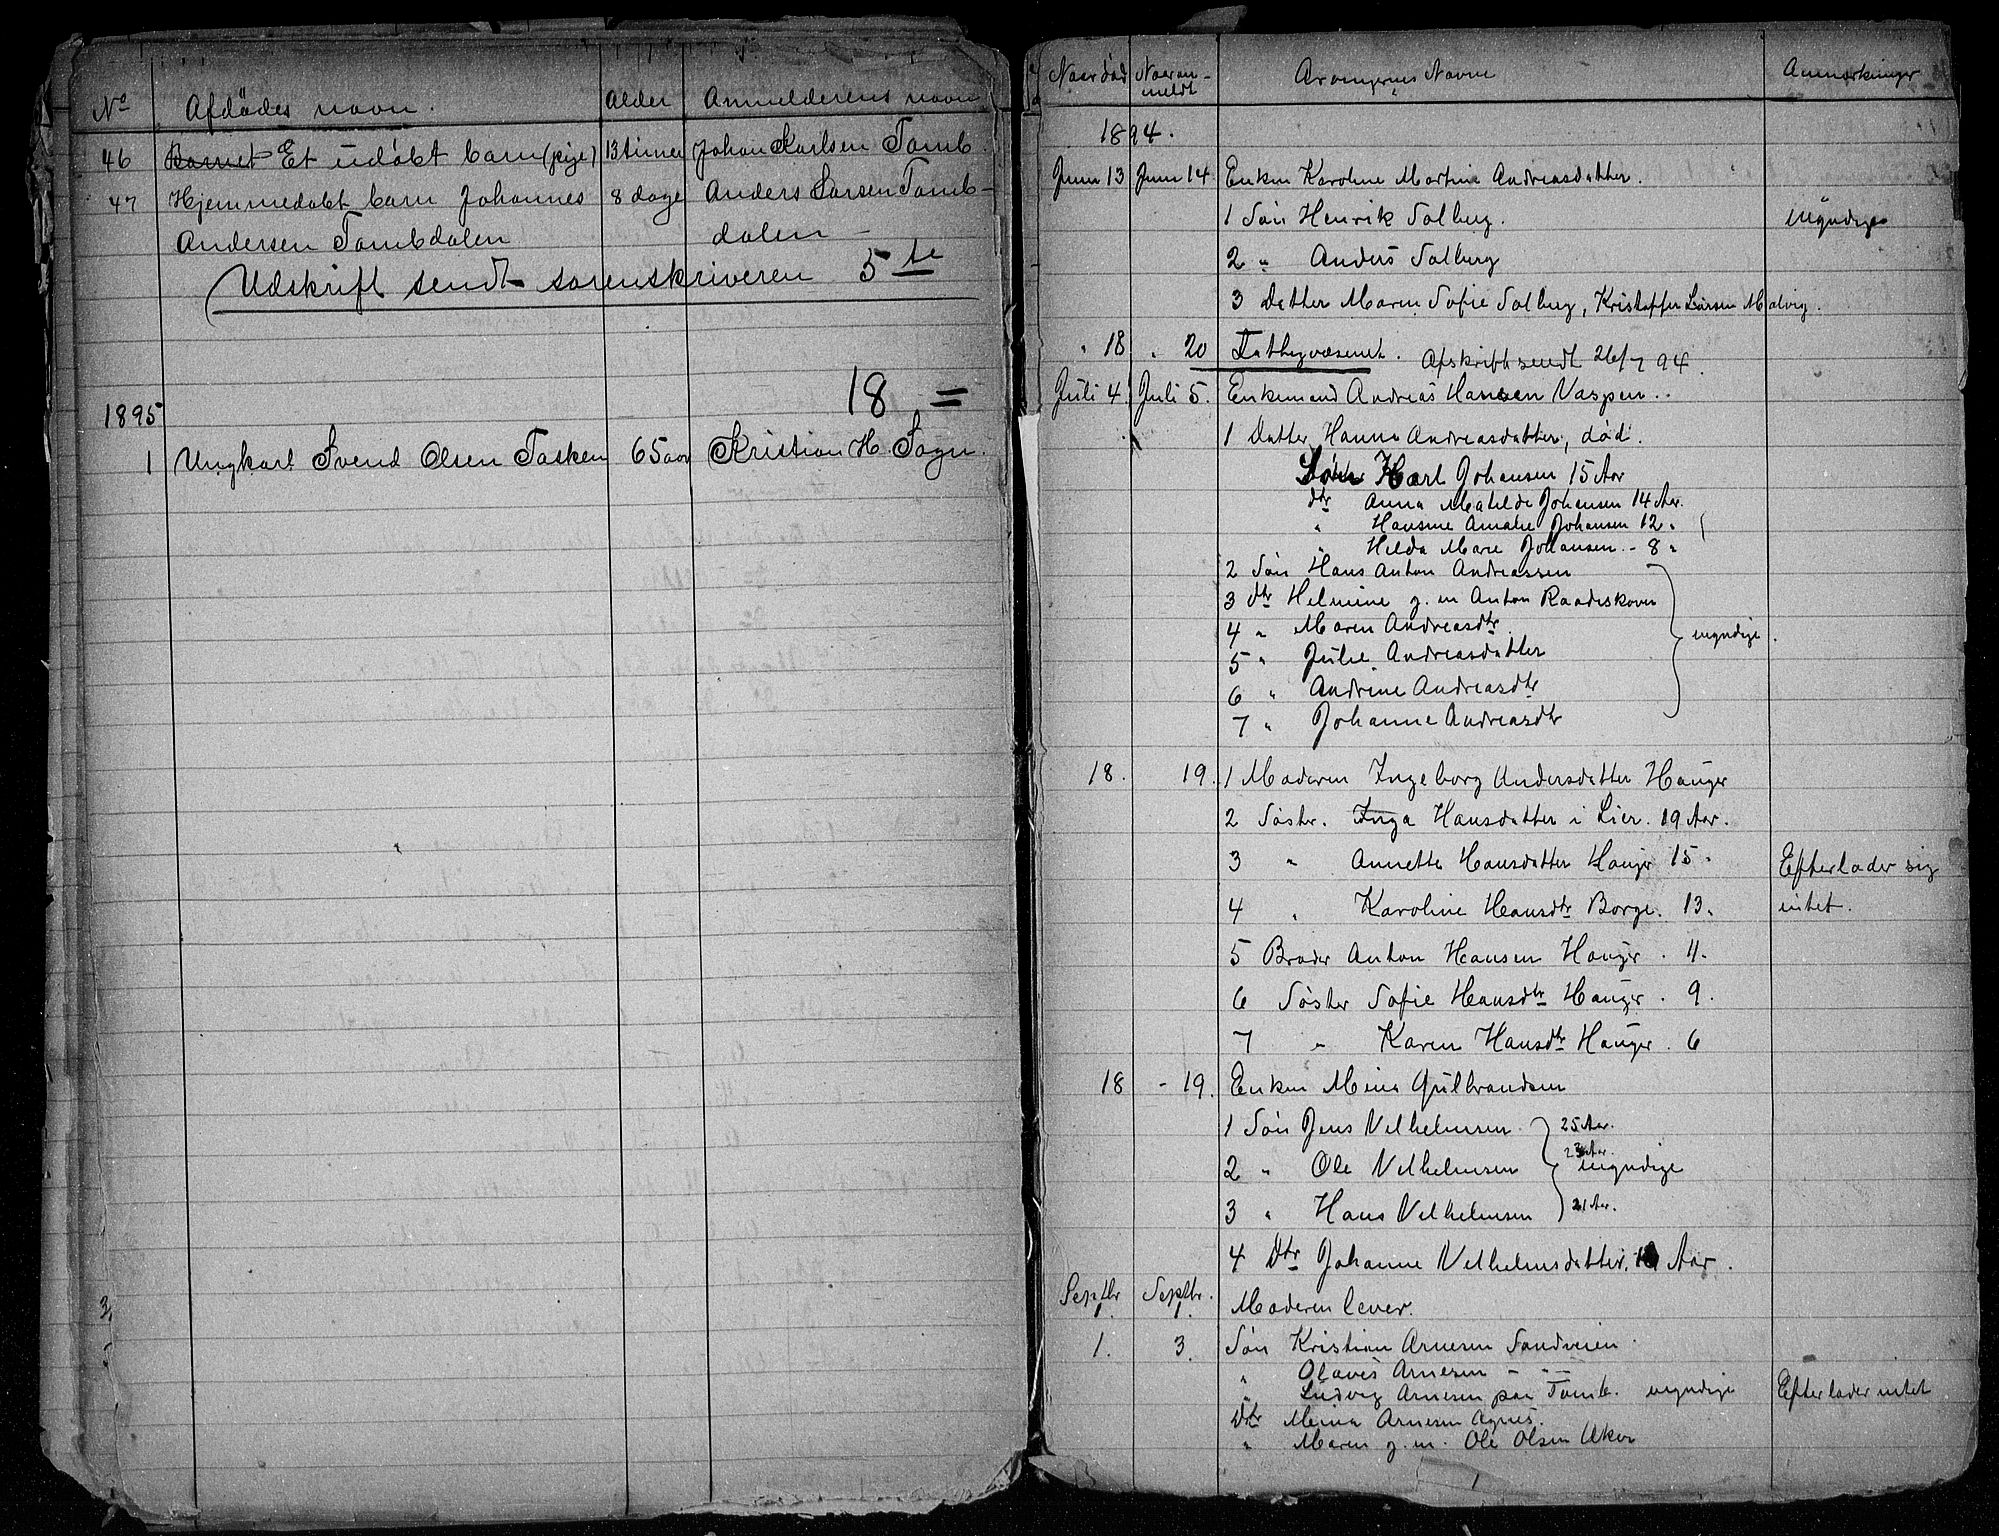 No Afdødes navn. Alder Anmelderens navn
46 Barnet Et udøbt barn (pige) 13 timer Johan Karlsen Tomb.
47 Hjemmedøbt barn Johannes 8 dage Anders Larsen Tomb-
Andersen Tombdalen dalen
Udskrift sendt sorenskriveren 5te
18 =
1895
1 Ungkarl Svend Olsen Tasken 65 aar Kristian H. Sogn.
Naar død Naar an- Arvingernes Navne Anmærkninger
meldt
1894.
Juni 13 Juni 14. Enken Karoline Martine Andreasdatter.
1 Søn Henrik Solberg. myndige
2 " Anders Solberg
3 Datter Maren Sofie Solberg, Kristoffer Larsen Malvig.
" 18 " 20 Fattigvæsenet. Afskrift sendt 26/7 94.
Juli 4. Juli 5. Enkemand Andreas Hansen Vaspen.
1 Datter Hanna Andreasdatter, død.
Søn Karl Johansen 15 Aar
dtr Anna Matilde Johansen 14 Aar.
" Hansine Amalie Johansen 12 "
" Hilda Marie Johansen - 8 "
2 Søn Hans Anton Andreassen
3 dtr Helmine g. m Anton Raadeskoven
4 " Maren Andreasdtr. myndige.
5 " Julie Andreasdatter
6 " Andrine Andreasdtr
7 " Johanne Andreasdtr
18. 19. 1 Moderen Ingeborg Andersdatter Hauger
2 Søster. Inga Hansdatter i Lier. 19 Aar.
3 " Annette Hansdatter Hauger 15 " Efterlader sig
4 " Karoline Hansdtr Borge. 13 " intet.
5 Broder Anton Hansen Hauger. 11.
6 Søster Sofie Hansdtr Hauger. 9.
7 " Karen Hansdtr Hauger. 6
18 - 19. Enken Mina Gulbrandsen
1 Søn Jens Vilhelmsen 25 Aar.
2 " Ole Vilhelmsen 23 Aar. myndige
3 " Hans Vilhelmsen 21 Aar.
4 Dtr Johanne Vilhelmsdatter, Aar.
Septbr 1. Septbr. 1. Moderen lever.
1. 3. Søn Kristian Arnesen Sandveien.
" Olaves Arnesen - --
" Ludvig Arnesen paa Tomb. myndige Efterlader intet
Dtr Mina Arnesen Agnes.
" Maren g. m. Ole Olsen Aker